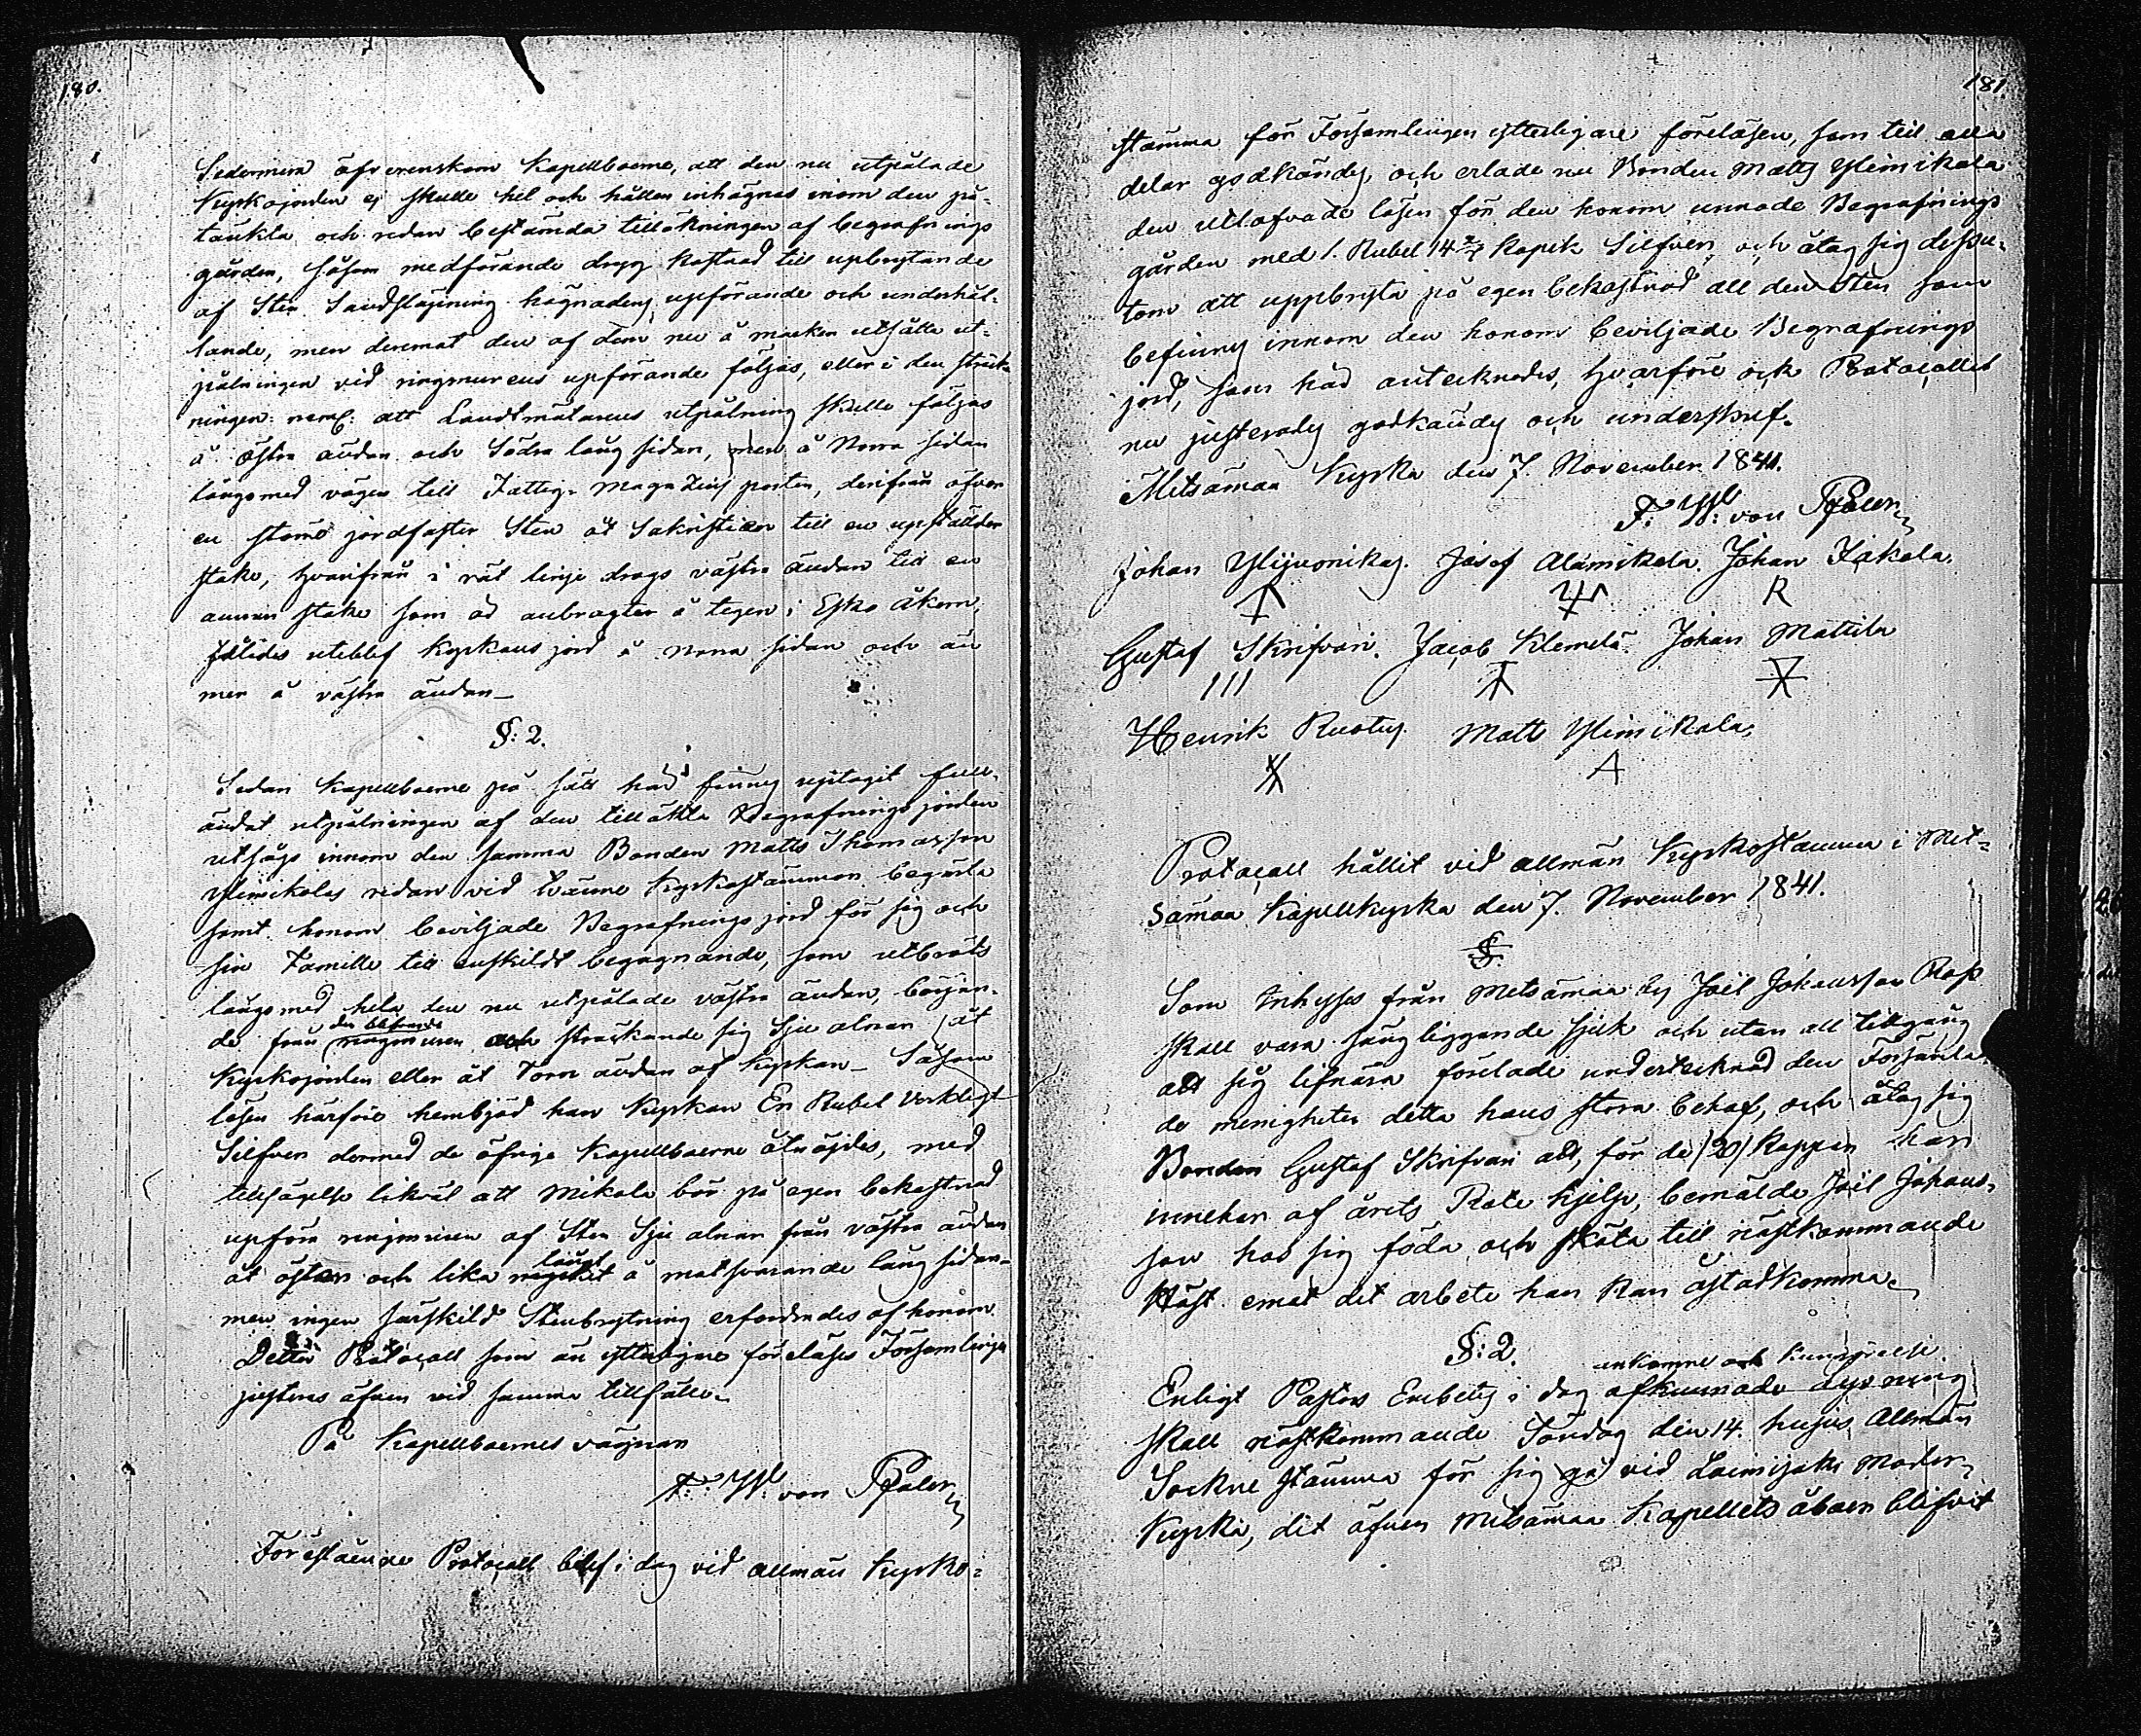 180.
Sedermera öfverenskom Kapellboerne, att den nu utpålade
Kyrkojorden ej skulle hel och hållen inhägnas inom den på-
tänkta och redan bestämda tillökningen af begrafnings
gården, såsom medförande dryg kostnad till upbrytande
af Sten Sandslöjning hägnadens upförande och underhål-
lande, men deremot den af dem nu å marken utsatte ut-
pålningen vid ringmurens upförande följas, eller i den sträck-
ningen: neml: att Landtmätarens utpålning skulle följas
å östra ändan och Södra långsidan, men å Norra sidan
långsmed vägen till Fattig-Magazins porten, derifrån öfver
en större jordfaster Sten åt Sakristian till en upstälder
stake, hvarifrån i rät linje drags västra ändan till en
annan stake som är anbragter å tegen i Esko åkern,
således uteblef kyrkans jord å norra sidan och än
mer å västra ändan_
§: 2.
Sedan Kapellboerne på sätt här finnes uptagit full-
ändat utpålningen af den tillökta Begrafningsjorden
utsågs innom den samma Bonden Matts Thomasson
Ylimikolas redan vid tvänne Kyrkostämmor begärta
samt honom beviljade Begrafnings jord för sig och
sin Famille till enskildt begagnande, som utbröts
långsmed hela den nu utpålade västra ändan, början-
de från den blifvande ringmuren och sträckande sig Sju alnar åt
Kyrkojorden eller åt Torn ändan af Kyrkan_ Såsom
lösen härföre hembjöd han Kyrkan En Rubel Verkligt
Silfver dermed de öfrige Kapellboerne åtnöjdes, med
tillsägelse likväl att Mikola bör på egen bekostnad
upföra ringmuren af Sten Sju alnar från västra ändan
åt östern och lika långt å motsvarande långsidan_
men ingen särskild Stenbrytning erfordrades af honom
Detta Protocoll som än ytterligare föreläses Församlingen
justeras äfven vid samma tillfälle_
På Kapellboernes vägnar
F: W: von Pfaler
Föreståennde Protocoll blef i dag vid allmän Kyrko-
181.
stämma för Församlingen ytterligare föreläsen, som till alla
delar godkändes, och erlade nu Bonden Matts Ylimikola
den utlofvade lösen för den honom unnade Begrafnings
gården med 1. Rubel 14 2/7 Kopek Silfver, och åtog sig dessu-
tom att uppbryta på egen bekostnad all den Sten som
befinnes innom den honom beviljade Begrafnings
jord, som här antecknades, hvarföre ock Protocollet
nu justerades godkändes och underskref.
Metsämaa Kyrka den 7. November 1841.
F: W: von Pfaler
Johan Ylijvonikas. Josef Alamikola. Johan Kakola.
R
Gustaf Skrifvari. Jacob Klemelä. Johan Mattila
III
Henrik Rustus. Matt Ylimikola.
A
Protocoll hållit vid allmän Kyrkostämma i Met-
sämaa Kapellkyrka den 7. November 1841.
§.
Som Inhyses från Metsämaa by Joel Johansson Rop
skall vara sängliggande sjuk och utan all tillgång
att sig lifnära förelade undertecknad den Församla-
de menigheten detta hans stora behof, och åtog sig
Bonden Gustaf Skrifvari att, för de (20) Kappar han
innehar af årets Rote hjelp, bemälde Joel Johans-
son hos sig föda och sköta till nästkommande
Höst emot det arbete han kan åstadkomma_
§: 2.
Enligt Pastors Embetes i dag ankomne och kungörelse afkunnade lysning
skall nästkommande Söndag den 14. hujus Allmän
Sockne stämma för sig gå vid Loimijoki Moder-
Kyrka, dit äfven Metsämaa Kapellets åboer blifvit